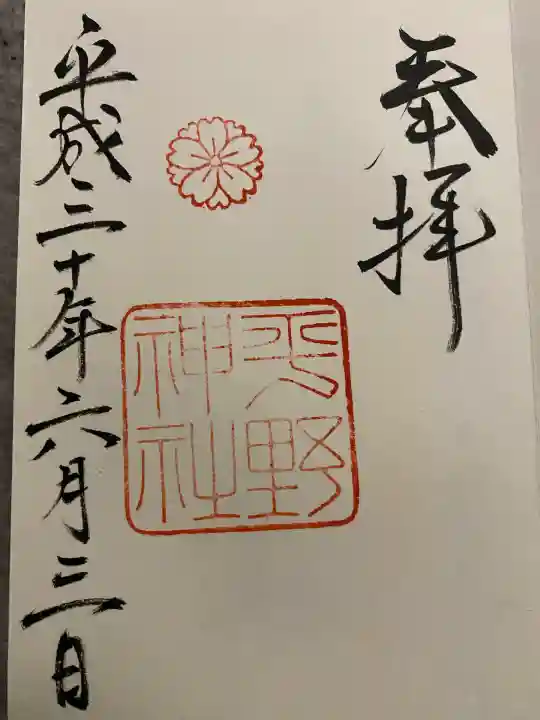 奉拝
平野
神社
平成三十年六月三日